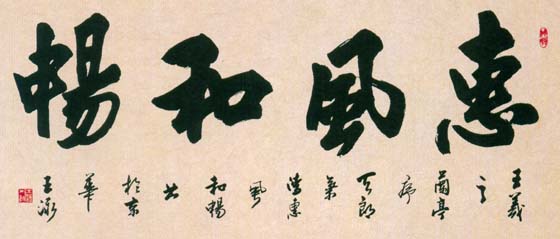 惠風和暢
王羲之蘭亭序天朗氣清惠風和暢書於京華王